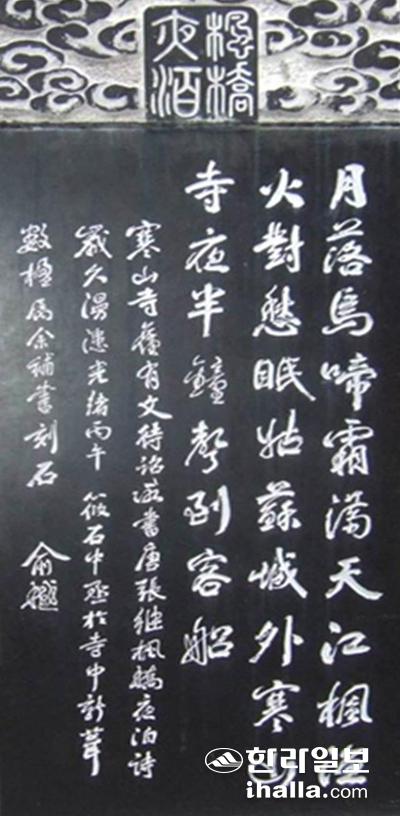 楓橋
夜泊
月落烏啼霜滿天江楓漁
火對愁眠姑蘇城外寒山
寺夜半鐘聲到客船
寒山寺舊有文待詔所書唐張繼楓橋夜泊詩
歲久漫漶光緒丙午筱石中丞於寺中新葺
數楹屬余補書刻石 俞樾
한라일보
ihalla.com